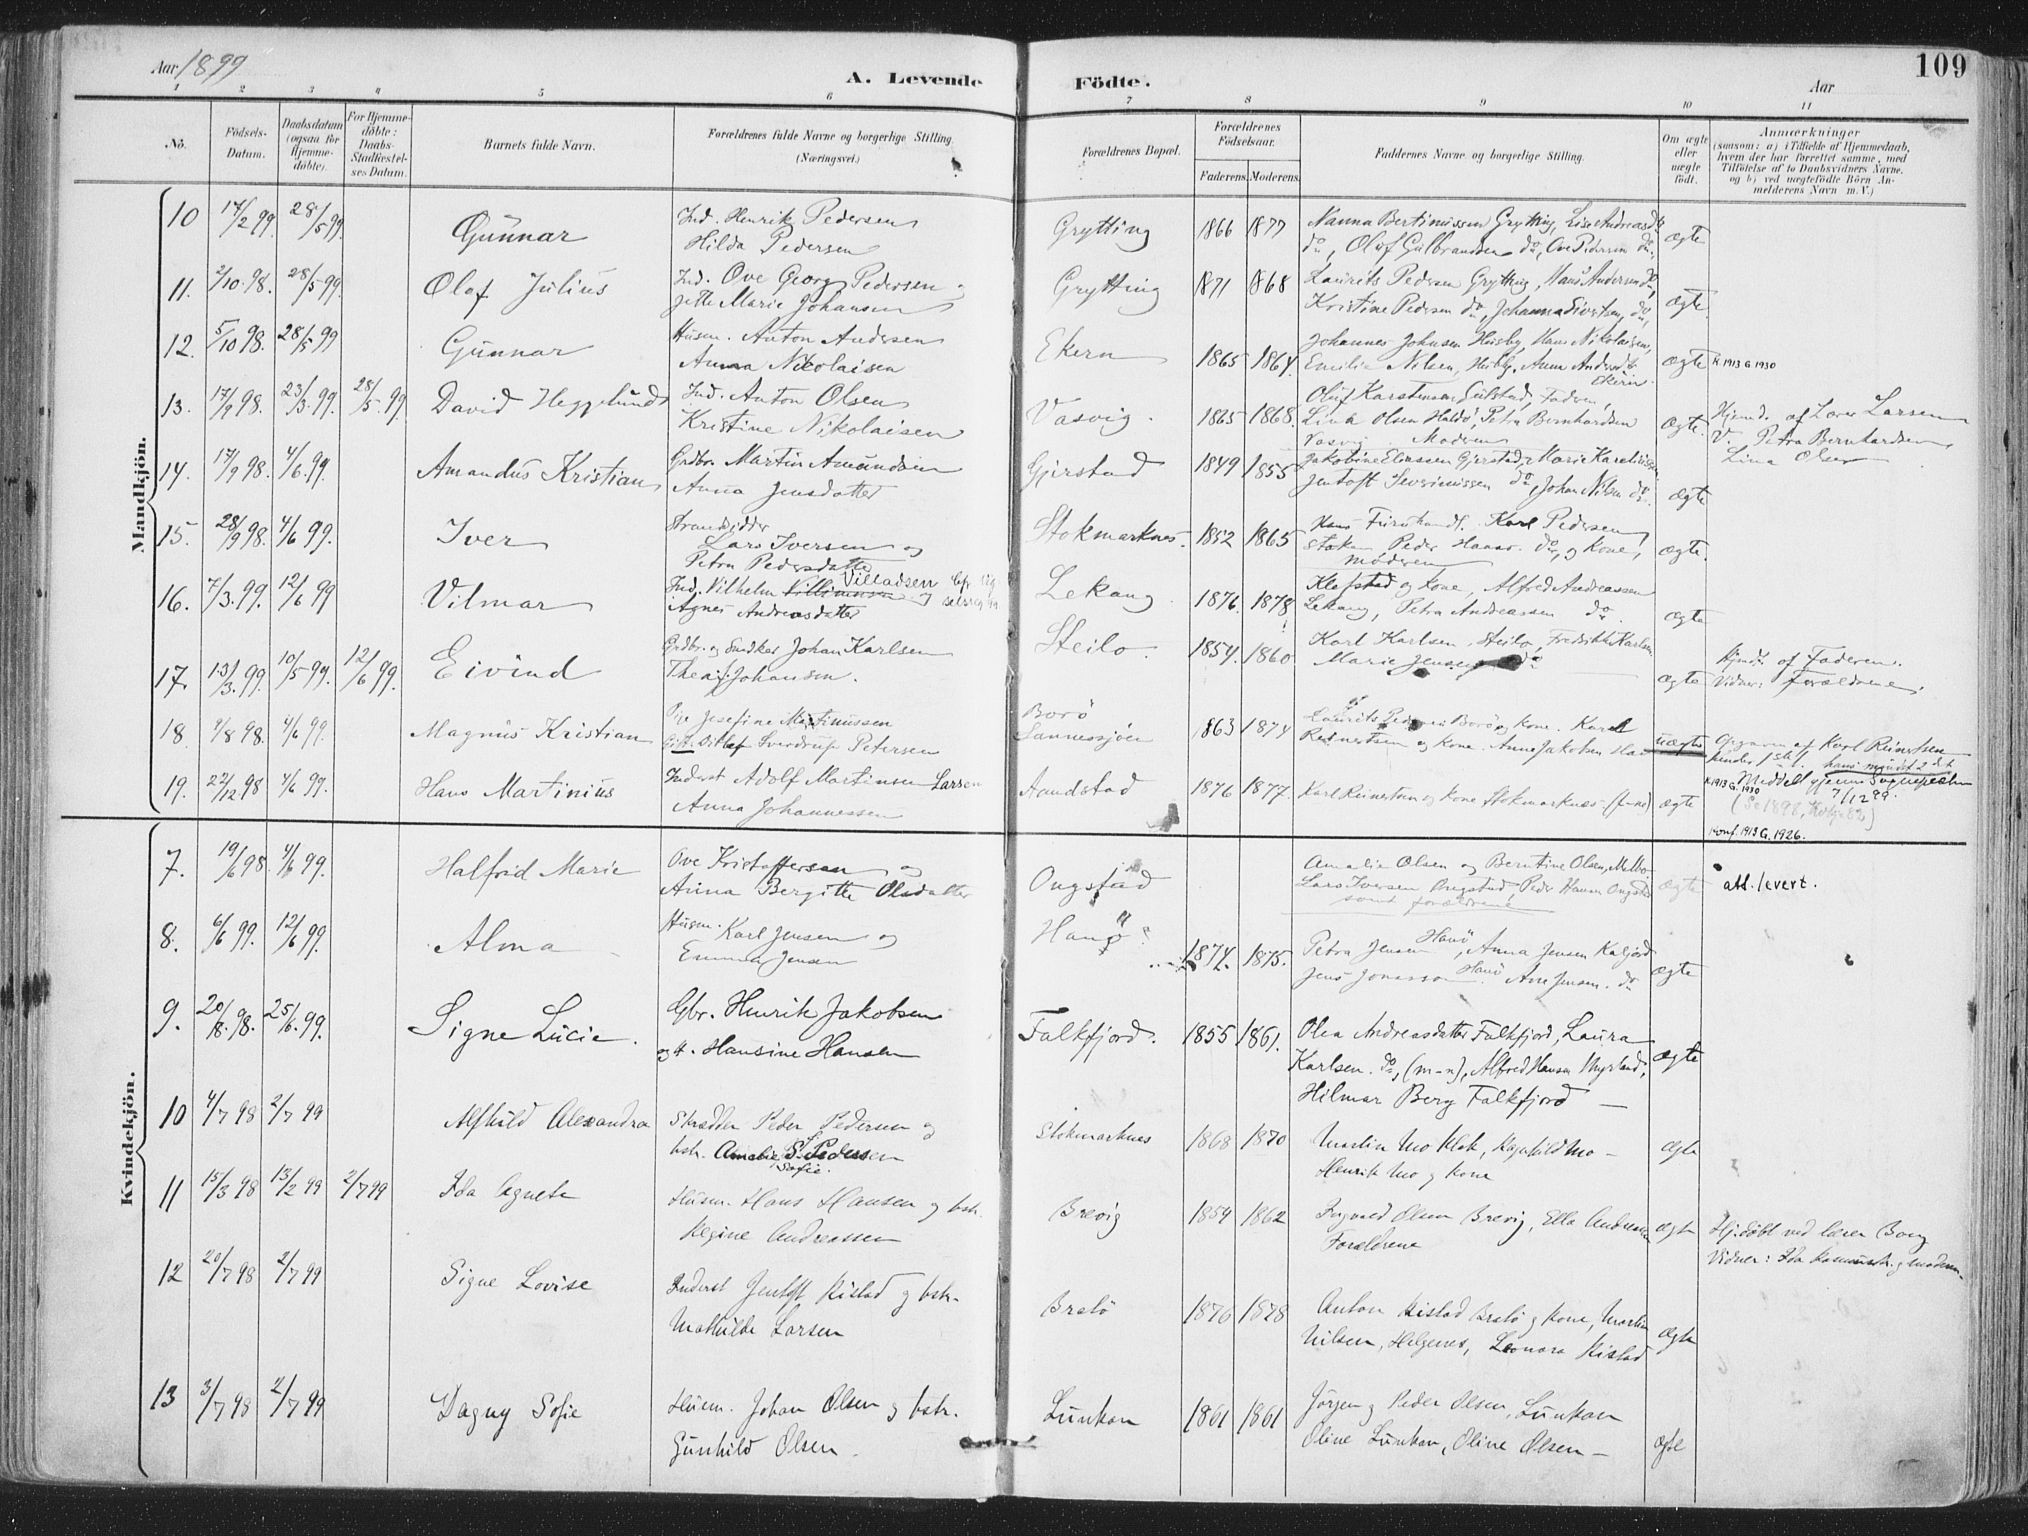 Aar 1899
A. Levende Födte.
Aar
109
1 2 3 4 5 6 7 8 9 10 11
Nô.
Födsels-Datum.
Daabsdatum (ogsaa for Hjemmedöbte).
For Hjemmedöbte: Daabs-Stadfæstelses Datum.
Barnets fulde Navn.
Forældrenes fulde Navne og borgerlige Stilling. (Næringsvei.)
Forældrenes Bopæl.
Forældrenes Födselsaar.
Faderens. Moderens.
Faddernes Navne og borgerlige Stilling.
Om ægte eller uægte födt.
Anmærkninger (saasom: a) i Tilfælde af Hjemmedaab, hvem der har forrettet samme, med Tilföielse af to Daabsvidners Navne. og b) ved uægtefödte Börn Anmelderens Navn m. V.)
Mandkjön.
10 17/2 99. 28/5 99. Gunnar
Ind. Henrik Pedersen
Hilda Pedersen
Grytting 1866 1877
Nanna Bertinussen Grytting, Lise Andreasd. do
do, Olaf Gulbrandsen do, Ove Pedersen do. ægte
11. 2/10 98. 28/5 99. Olaf Julius
Ind. Ove Georg Pedersen og
Jette Marie Johansen
Grytting 1871 1868
Laurits Pedersen Grytting, Hans Andersen do,
Kristine Pedersen do, Johanna Sivertsen do, ægte
12. 5/10 98. 28/5 99 Gunnar
Husm. Anton Andersen
Anna Nikolaisen
Ekern 1865 1864.
Johannes Johnsen Husby, Hans Nikolaisen,
Emilie Nilsen, Husby, Anna Andersd.
Ekern. ægte K 1913 G 1930
13. 17/9 98. 23/3 99. 28/5 99 David Heggelund
Ind. Anton Olsen
Kristine Nikolaisen
Vasvig. 1865 1868.
Oluf Karstensen Gulstad, Fadren,
Lina Olsen Hadsö, Petra Bernhardsen
Vasvig. Modren ægte.
Hjemd. af Lærer Larsen
V. Petra Bernhardsen
Lina Olsen
14. 17/9 98. 4/6 99. Amandus Kristian
Grdbr. Martin Amundsen
Anna Jensdatter
Gjerstad 1849 1855
Jakobine Eliassen Gjerstad, Marie
Jentoft Severinussen do, Johan Nilsen do. ægte
15. 28/9 98. 4/6 99. Iver
Strandsidder
Lars Iversen og
Petra Pedersdatter
Stokmarknes. 1852 1865
Hans Karl Pedersen
Stokm. Peder Hanss. do, og Kone,
moderen ægte.
16. 7/3 99. 12/6 99 Vilmar
Ind. Vilhelm Villadsen og
Agnes Andreasdatter
Lekang 1876. 1878
Klafstad og Kone, Alfred Andreassen
Lekang, Petra Andreassen do. ægte
17. 13/3 99. 10/5 99. 12/6 99. Eivind
Grdbr. og Snedker Johan Karlsen
Thea J. Johansen.
Steilo. 1854. 1860
Karl Karlsen, Steilo, Fredrikke Karlsen
Marie Jensen do ægte
Hjmd. af Faderen.
Vidner: Forældrene.
18 4/8 98. 4/6 99. Magnus Kristian
Pige Josefine Martinussen
Gift Ditlef Sverdrup Petersen
Borö
Sannessjöen 1863 1874
Laurits Pedersen Borö og Kone. Karl
Reinertsen og Kone. Anne Jakobsen uægte
Opgaven af Karl Reinertsen
hendes 1ste, hans mindst 2det
19. 22/12 98 4/6 99. Hans Martinius
Inderst Adolf Martinsen Larsen
Anna Johannessen
Aandstad 1876 1877.
Karl Reinertsen og Kone Stokmarknes. ægte
K 1913 G. 1930
7/12 99.
(Se 1898,
Konf. 1913 G. 1926.
Kvindekjön.
7. 19/6 98 4/6 99. Halfrid Marie
Ove Kristoffersen og
Anna Bergitte Olsdatter
Ongstad
Amalia Olsen og Berntine Olsen, Melbo
Lars Iversen Ongstad, Peder Hansen Ongstad
samt forældrene ægte att. levert.
8. 6/6 99. 12/6 99. Alma
Husm. Karl Jensen og
Emma Jensen
Hanö 1874. 1875.
Petra Jensen Hanö, Anna Jensen Kaljord
Jens Jonasson Hanö. Ane Jensen. do ægte
9. 20/8. 98. 25/6 99. Signe Lucie.
Gbr. Henrik Jakobsen
og H. Hansine Hansen
Falkfjord. 1855 1861.
Olea Andreasdatter Falkfjord, Laura
Karlsen. do, (m-n), Alfred Hansen Myrland,
Hilmar Berg Falkfjord — ægte
10 4/7 98 2/7 99 Alfhild Alexandra
Skrædder Peder Pedersen og
hstr. Amalie S. Pedersen
Sofie.
Stokmarknes 1868 1870
Martin Mo Klok, Ragnhild Mo —
Henrik Mo og Kone ægte
11 15/3 98 13/2 99 2/7 99 Ida Agnete
Husm. Hans Hansen og hstr.
Regine Andreassen
Brevig 1859 1862
Ingvald Olsen Brevig, Ella Andreassen
Forældrene ægte
Hj.döbt ved lærer Borg
Vidner: Ida Rasmussen og moderen.
12 20/7 98 2/7 99 Signe Lovise
Inderst Jentoft Kistad og hstr.
Mathilde Larsen
Bratö 1876 1878
Anton Kistad Bratö og Kone, Martin
Nilsen, Helgenes, Leonora Kistad ægte
13 3/7 98 2/7 99 Dagny Sofie
Husm. Johan Olsen og hstr.
Gunhild Olsen.
Lunkan 1861 1861
Jörgen og Peder Olsen, Lunkan
Oline Lunkan, Oline Olsen — ægte